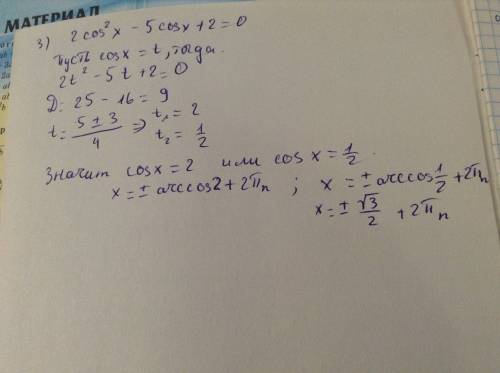 МАТЕРИАЛ
3) 2cos²x - 5cosx + 2 = 0
Пусть cosx = t, тогда.
2t² - 5t + 2 = 0
D = 25 - 16 = 9
t = (5 ± 3)/4 ⇒ t₁ = 2
t₂ = 1/2
Значит cosx = 2 или cos x = 1/2.
x = ± arccos2 + 2πn ; x = ± arccos 1/2 + 2πn
x = ± √3/2 + 2πn